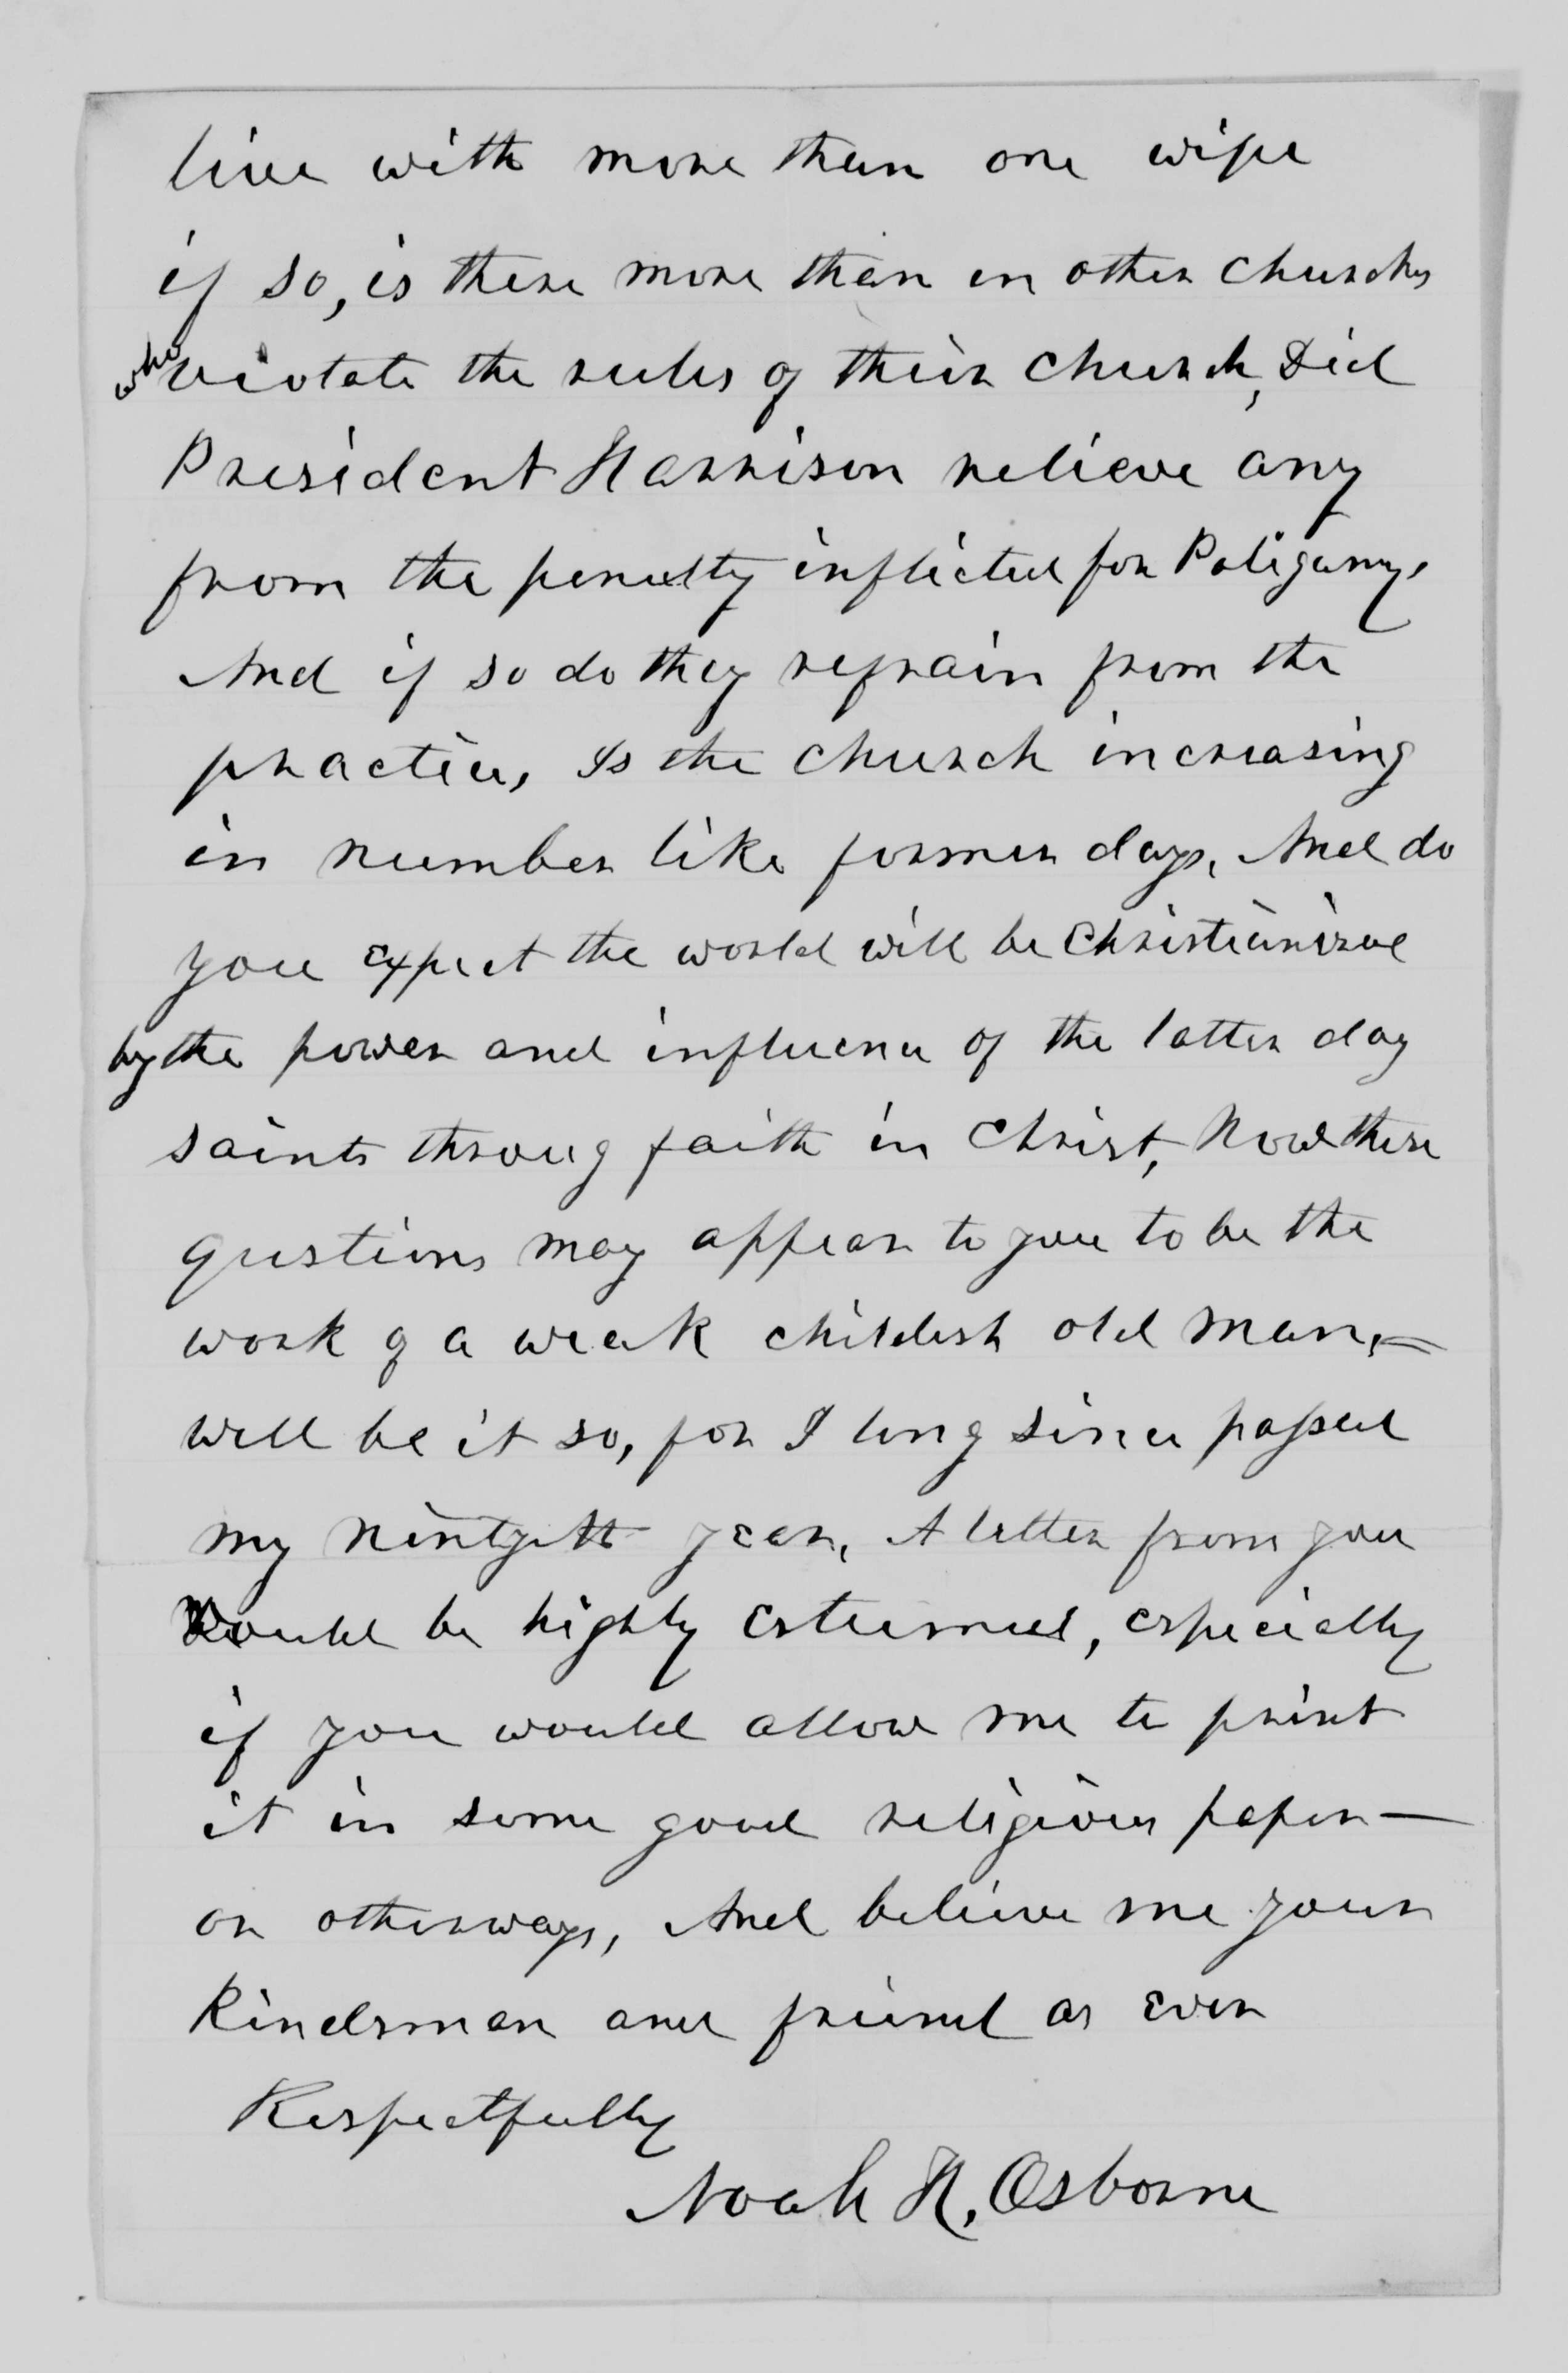 live with more than one wife
if so, is there more than in other churches
who violate the rules of their church, Did
President Harrison relieve any
from the penalty inflicted for Poligamy,
And if so do they refrain from the
practice, Is the church increasing
in number like former days, And do
you expect the world will be Christianised
by the power and influence of the latter day
saints throug faith in Christ, Now these
questions may appear to you to be the
work of a weak childish old man,—
well be it so, for I long since passed
my nintyith year, A letter from you
would be highly esteemed, especially
if you would allow me to print
it in some good religious paper—
or otherways, And believe me your
Kindsman and friend as ever
Respectfully
Noah H. Osborne